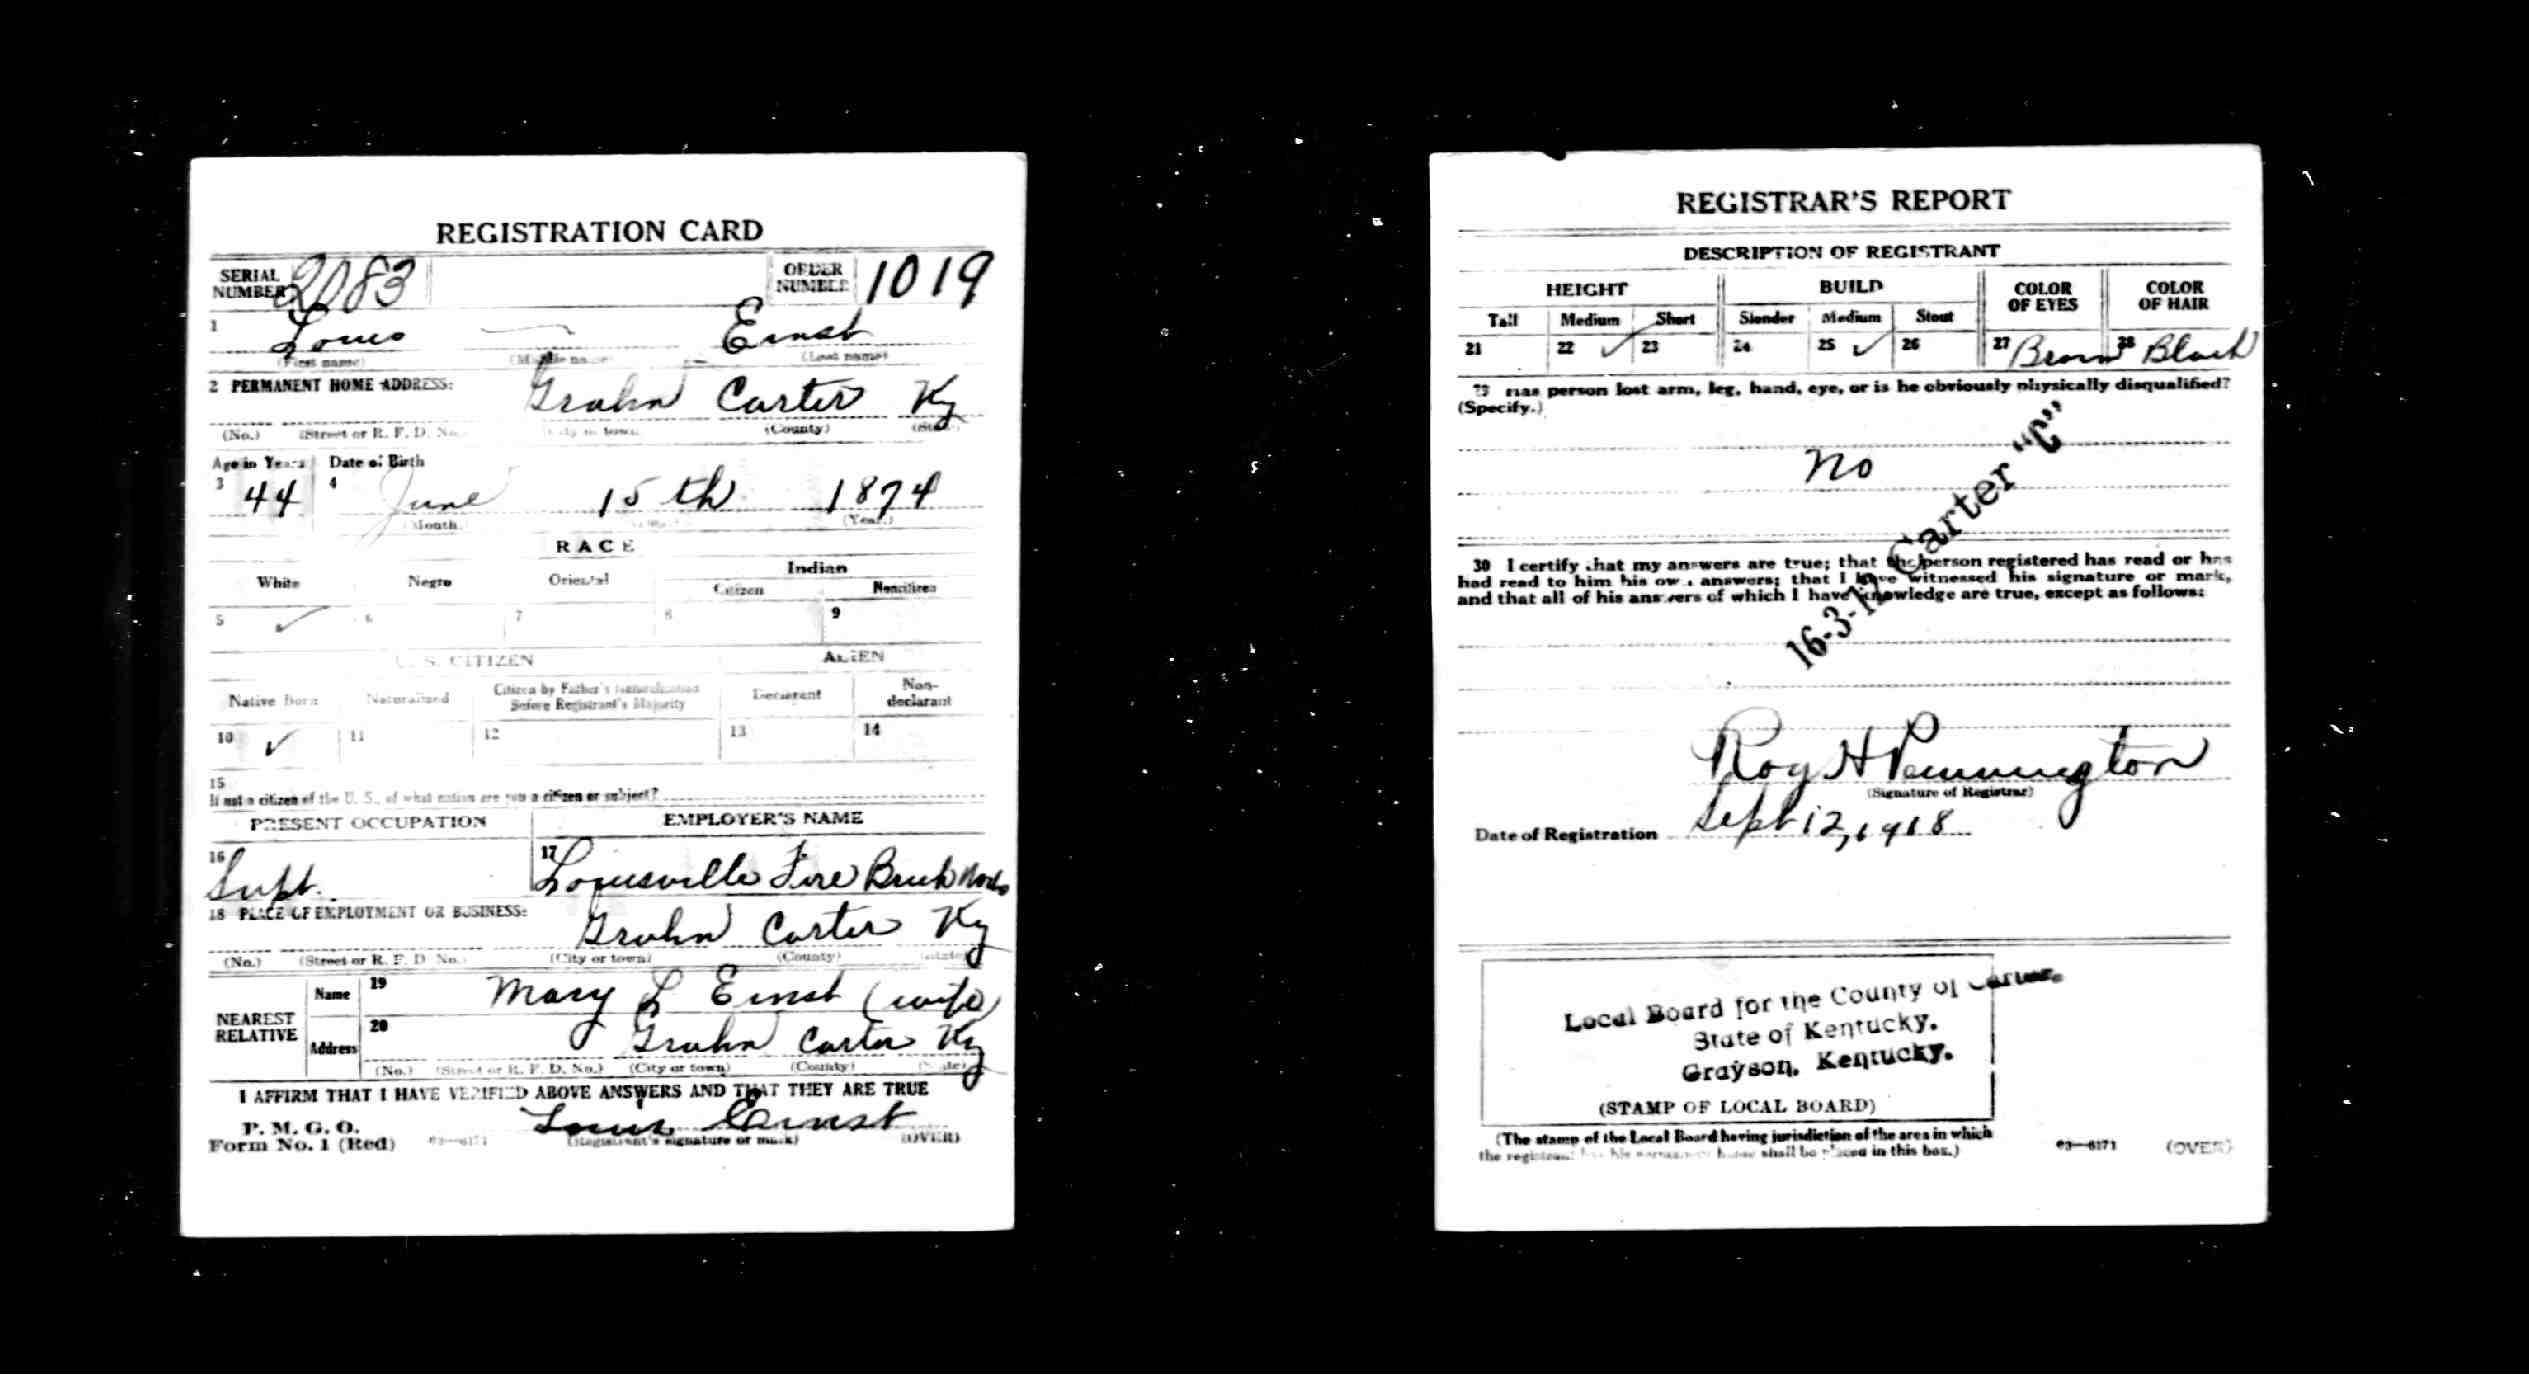 REGISTRATION CARD
SERIAL NUMBER 2083 ORDER NUMBER 1019
1 Louis — Ernst
(First name) (Middle name) (Last name)
2 PERMANENT HOME ADDRESS:
Grahn Carter Ky
(No.) (Street or R. F. D. No.) (City or town) (County) (State)
Age in Years Date of Birth
3 44 4 June 15th 1874
(Month.) (Year.)
RACE
White Negro Oriental Indian
Citizen Noncitizen
5 ✓ 6 7 8 9
U. S. CITIZEN ALIEN
Native Born Naturalized Citizen by Father's Naturalization Before Registrant's Majority Declarant Non-declarant
10 ✓ 11 12 13 14
15
If not a citizen of the U. S., of what nation are you a citizen or subject?
PRESENT OCCUPATION EMPLOYER'S NAME
16 Supt. 17 Louisville Fire Brick Works
18 PLACE OF EMPLOYMENT OR BUSINESS:
Grahn Carter Ky
(No.) (Street or R. F. D. No.) (City or town) (County) (State)
NEAREST RELATIVE
Name 19 Mary L Ernst (wife)
Address 20 Grahn Carter Ky
(No.) (Street or R. F. D. No.) (City or town) (County) (State)
I AFFIRM THAT I HAVE VERIFIED ABOVE ANSWERS AND THAT THEY ARE TRUE
P. M. G. O.
Form No. 1 (Red) 03—6171 Louis Ernst
(Registrant's signature or mark) (OVER)
REGISTRAR'S REPORT
DESCRIPTION OF REGISTRANT
HEIGHT BUILD COLOR OF EYES COLOR OF HAIR
Tall Medium Short Slender Medium Stout
21 22 ✓ 23 24 25 ✓ 26 27 Brown 28 Black
29 Has person lost arm, leg, hand, eye, or is he obviously physically disqualified?
(Specify.)
No
16-3-12 Carter "C"
30 I certify that my answers are true; that the person registered has read or has
had read to him his own answers; that I have witnessed his signature or mark,
and that all of his answers of which I have knowledge are true, except as follows:
Roy H Pennington
(Signature of Registrar)
Date of Registration Sept 12, 1918
Local Board for the County of Carter.
State of Kentucky.
Grayson, Kentucky.
(STAMP OF LOCAL BOARD)
(The stamp of the Local Board having jurisdiction of the area in which
the registrant has his permanent home shall be placed in this box.)
03—6171 (OVER)